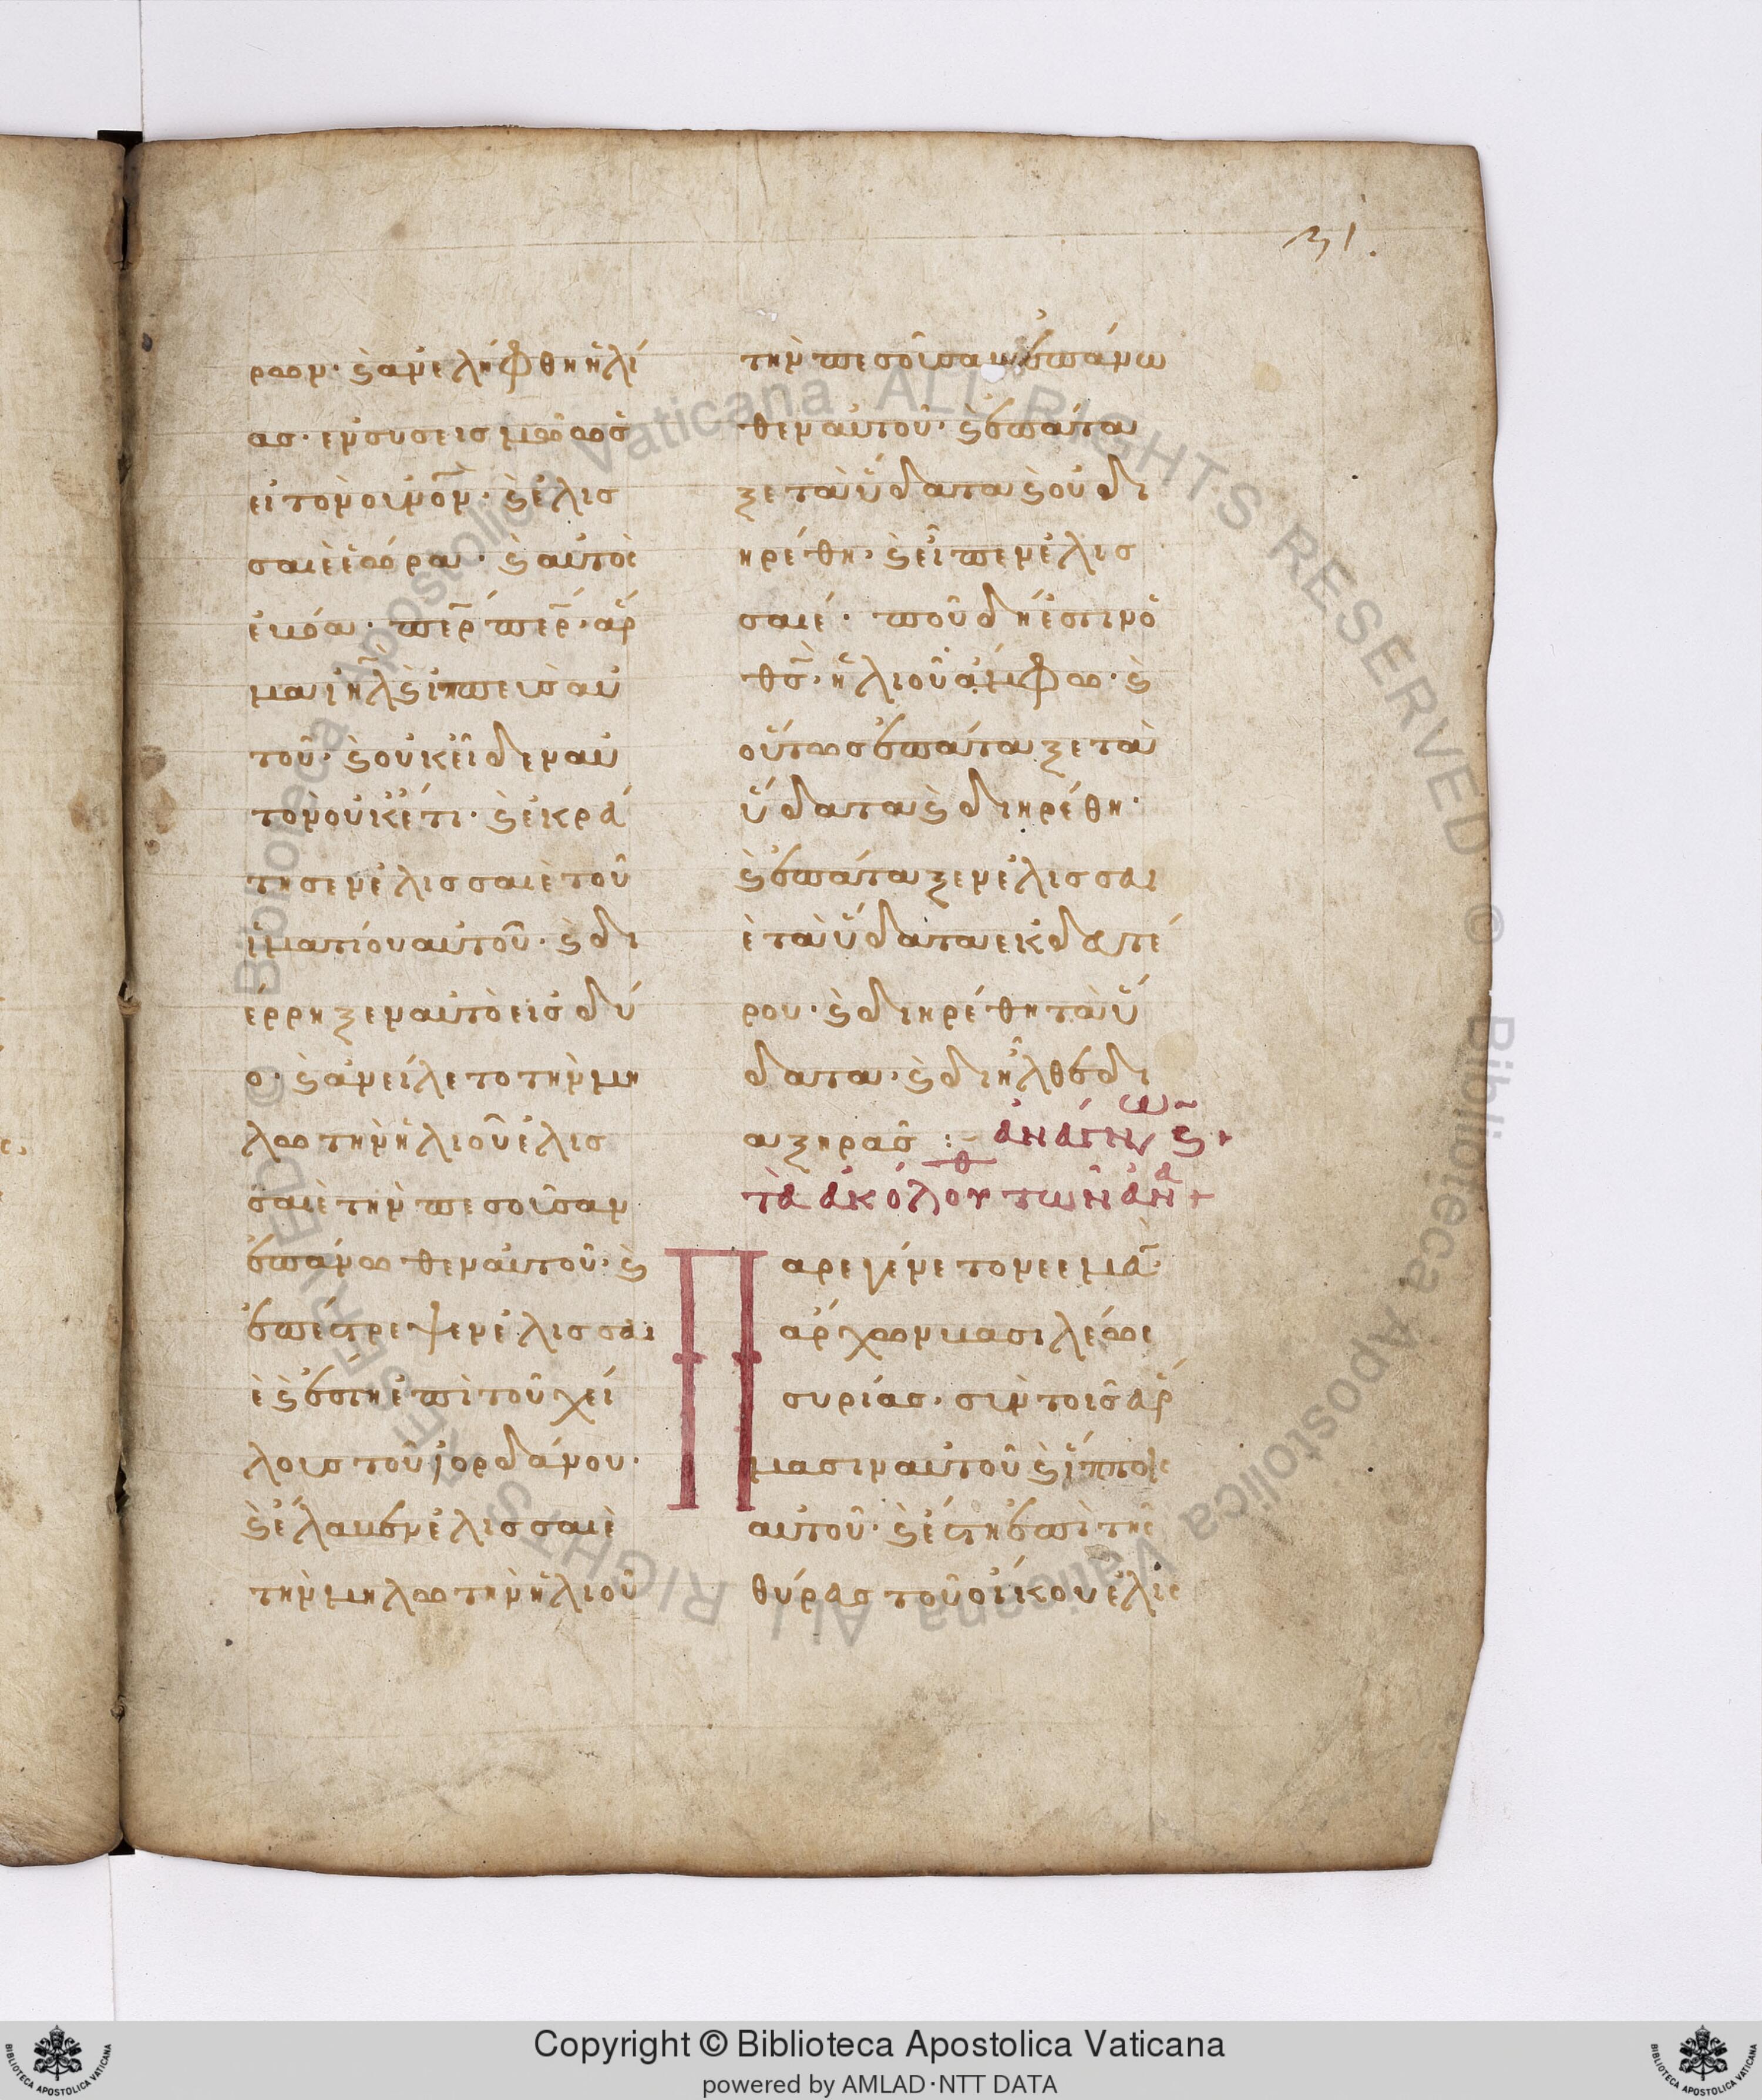 31.
ρων· ϗ ἀνελήφθη ἠλί
ας· ἐν συσεισμῷ ὡς
εἰ τὸν οὐνο̅ν· ϗ ἐλισ
σαιὲ ἑώρα· ϗ αὐτὸς
ἐβόα· πε̅ρ πε̅ρ· ἅρ
μα ιη̅λ ϗ ἱππεὺς αὐ
τοῦ· ϗ οὐκ εἶδεν αὐ
τὸν οὐκέτι· ϗ ἐκρά
τησεν ἐλισσαιὲ τοῦ
ἱματίου αὐτοῦ· ϗ δι
έρρηξεν αὐτὸ εἰς δύ
ο· ϗ ἀνείλετο τὴν μη
λωτὴν ἠλιοῦ ἐλισ
σαιὲ τὴν πεσοῦσαν
ἐπάνωθεν αὐτοῦ· ϗ
ἐπέστρεψεν ἐλισσαι
ὲ ϗ ἔστη ἐπὶ τοῦ χεί
λους τοῦ ἰορδάνου·
ϗ ἔλαβεν ἐλισσαιὲ
τὴν μηλωτὴν ἠλιοῦ
τὴν πεσοῦσαν ἐπάνω
θεν αὐτοῦ· ϗ ἐπάτα
ξε τὰ ὕδατα ϗ οὐ δι
ηρέθη· ϗ εἶπεν ἐλισ
σαιέ· ποῦ δή ἐστιν ὁ
θ̅ς· ἠλιοῦ ἀμφώ· ϗ
οὕτως ἐπάταξε τὰ
ὕδατα ϗ διηρέθη·
ϗ ἐπάταξεν ἐλισσαι
ὲ τὰ ὕδατα ἐκ δευτέ
ρου· ϗ διηρέθη τὰ ὕ
δατα· ϗ διῆλθε δι
ὰ ξηρᾶς :–
τὰ ἀκόλουθ τῶν ἀν
Παρεγένετο νεεμὰ̅·
ἄρχων βασιλέως
συρίας· σὺν τοῖς ἅρ
μασιν αὐτοῦ ϗ ἵπποις
αὐτοῦ· ϗ ἔστη ἐπὶ τῆς
θύρας τοῦ οἴκου ἐλις
Copyright © Biblioteca Apostolica Vaticana
powered by AMLAD·NTT DATA